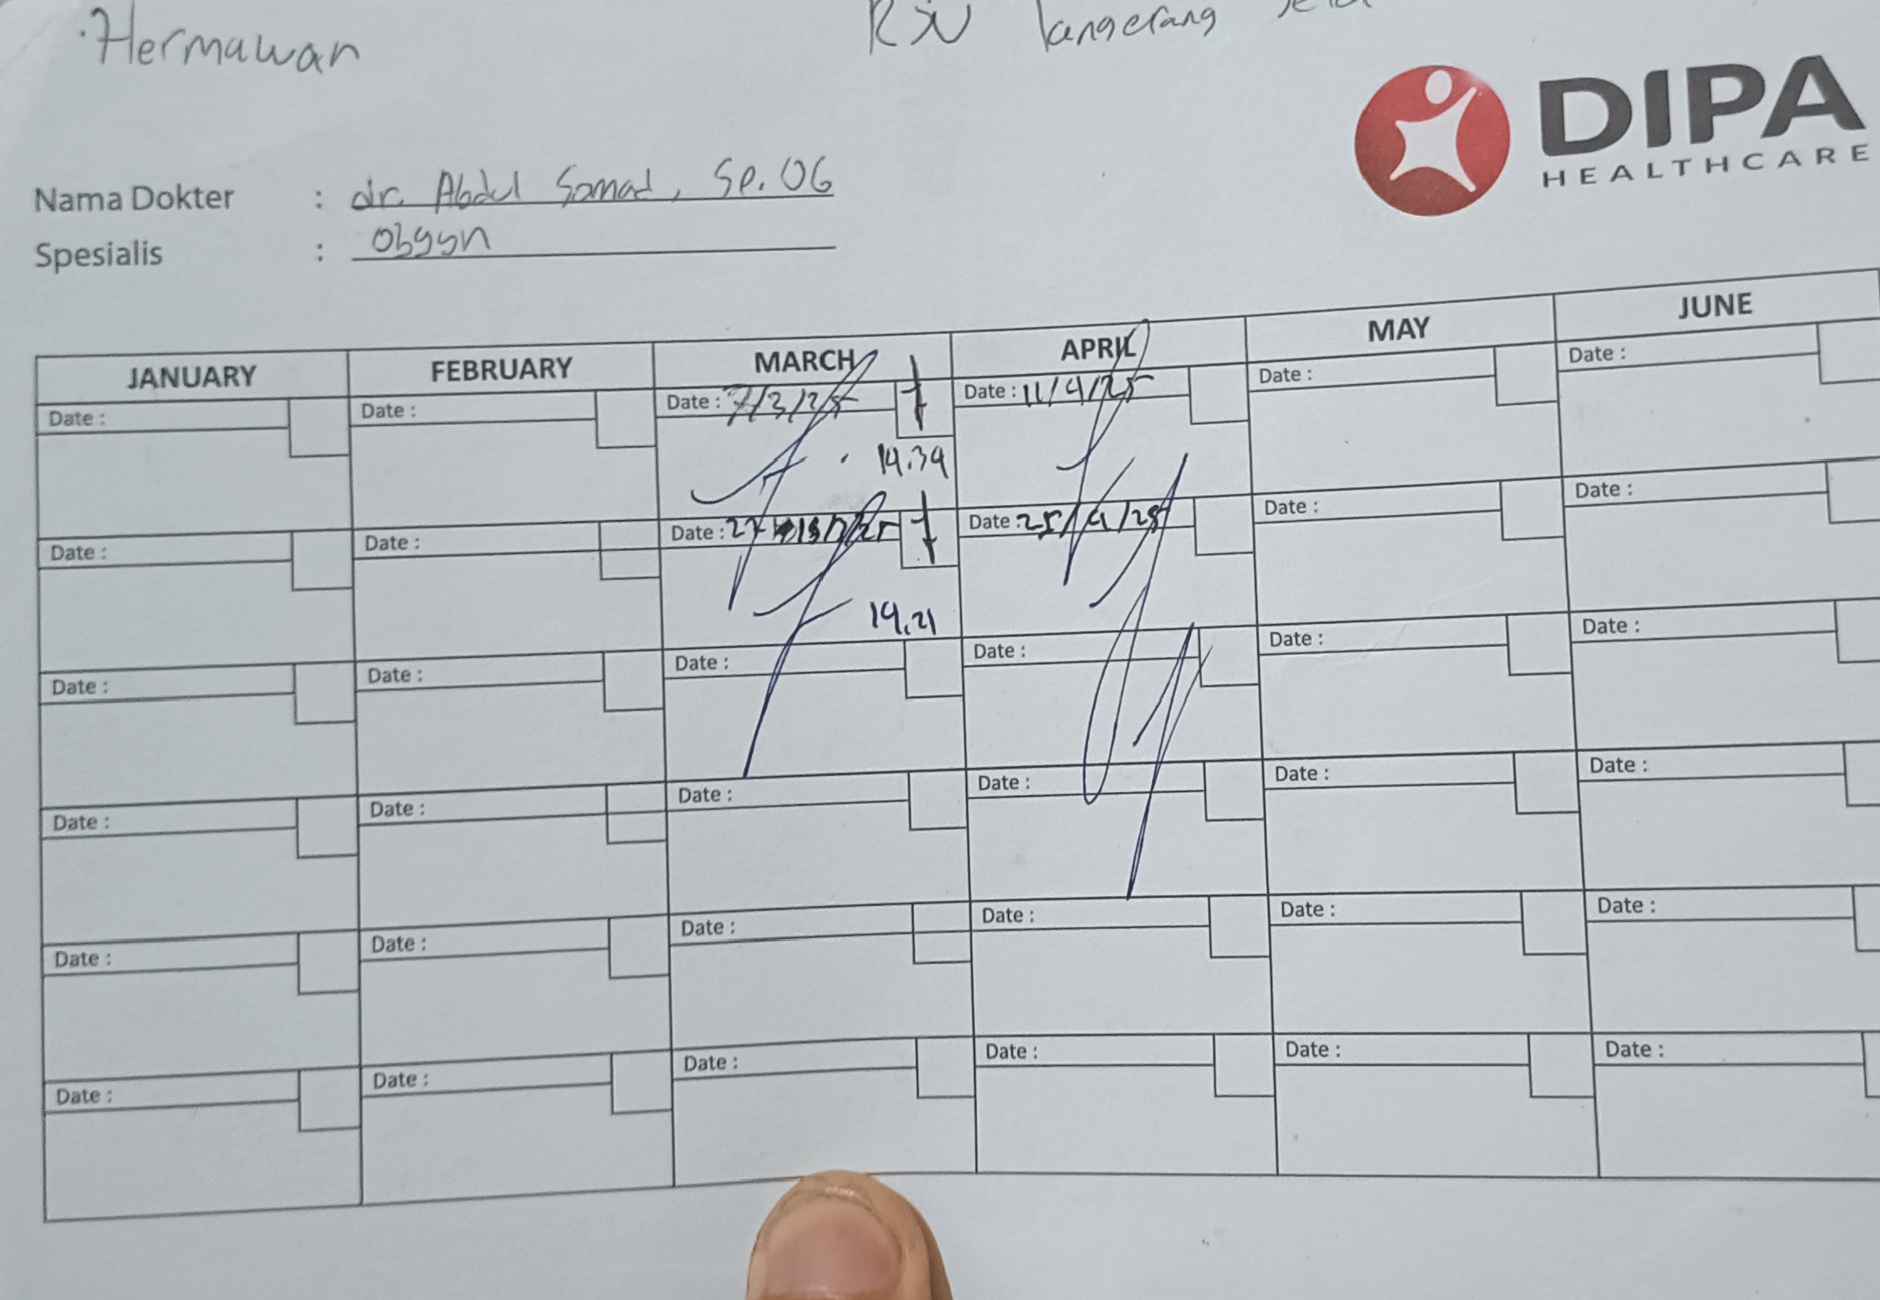 Hermawan
Tangerang
DIPA
HEALTHCARE
Nama Dokter : dr. Abdul Somad, Sp.OG
Spesialis : Obgyn
JANUARY FEBRUARY MARCH APRIL MAY JUNE
Date : Date : Date : 7/3/25 Date : 11/4/25 Date : Date :
14.34
Date : Date : Date : 27 /3/25 Date : 25/4/25 Date : Date :
14.21
Date : Date : Date : Date : Date : Date :
Date : Date : Date : Date : Date : Date :
Date : Date : Date : Date : Date : Date :
Date : Date : Date : Date : Date : Date :